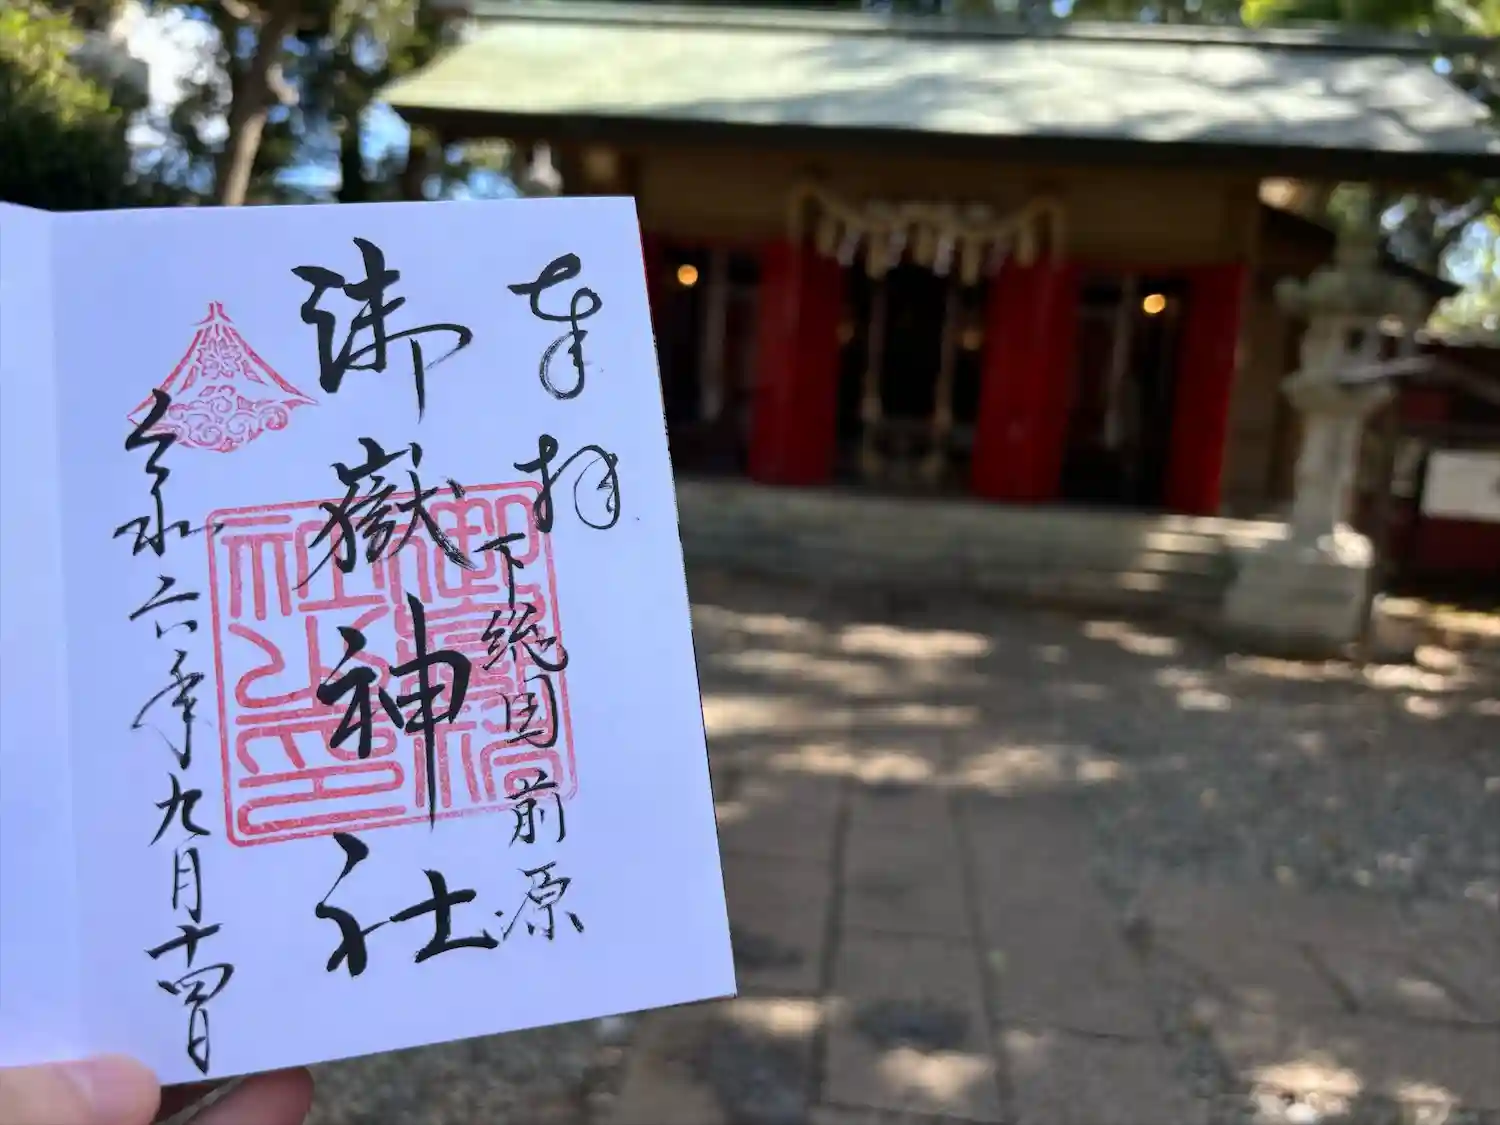 奉拝
下総国前原
御嶽神社
令和六年九月十四日
御嶽神社之印